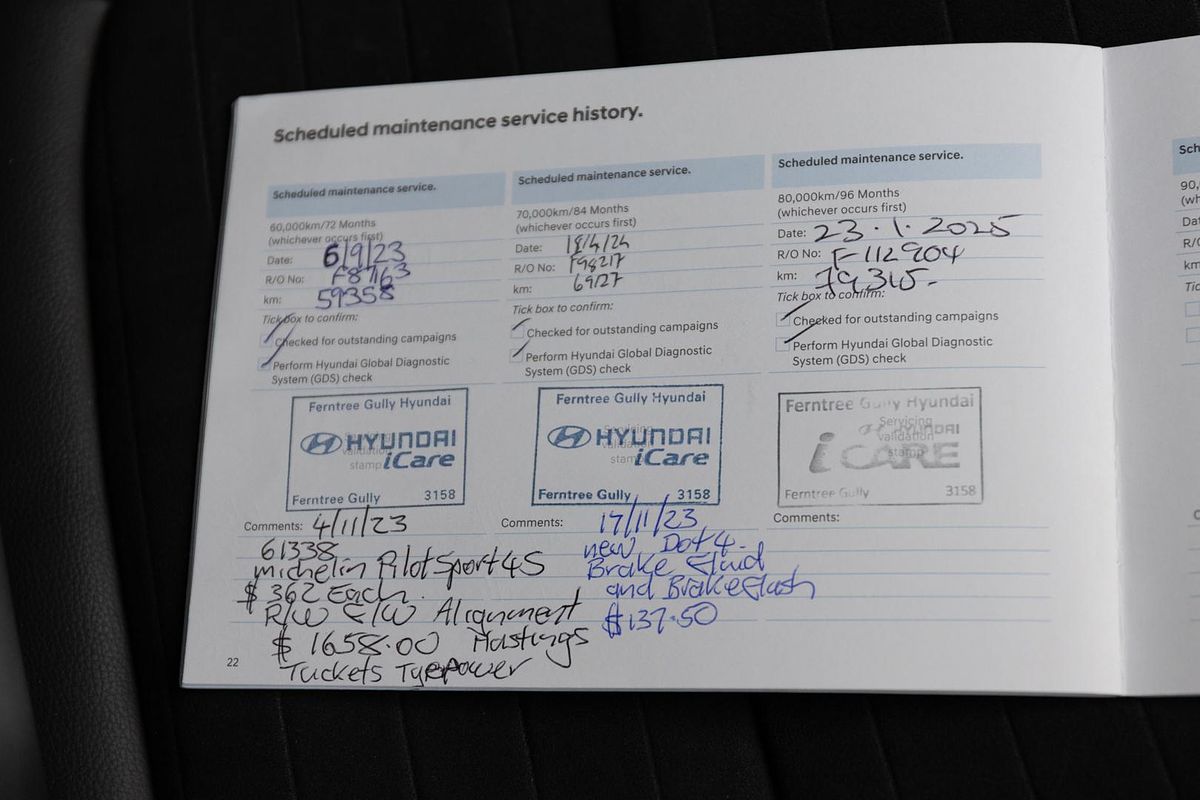 Scheduled maintenance service history.
Scheduled maintenance service.
60,000km/72 Months
(whichever occurs first)
Date: 6/9/23
R/O No: F87163
km: 59358
Tick box to confirm:
Checked for outstanding campaigns
Perform Hyundai Global Diagnostic
System (GDS) check
Ferntree Gully Hyundai
HYUNDAI
iCare
Ferntree Gully 3158
Comments: 4/11/23
61338
michelin PilotSport 4S
$362 Each.
R/W E/W Alignment
$1658.00 Hastings
Tuckets Tyrepower
Scheduled maintenance service.
70,000km/84 Months
(whichever occurs first)
Date: 18/4/24
R/O No: F98217
km: 69127
Tick box to confirm:
Checked for outstanding campaigns
Perform Hyundai Global Diagnostic
System (GDS) check
Ferntree Gully Hyundai
HYUNDAI
iCare
Ferntree Gully 3158
Comments: 17/11/23
new Dot 4.
Brake Fluid
and Brake Flash
$137.50
Scheduled maintenance service.
80,000km/96 Months
(whichever occurs first)
Date: 23.1.2025
R/O No: F112904
km: 79315-
Tick box to confirm:
Checked for outstanding campaigns
Perform Hyundai Global Diagnostic
System (GDS) check
Ferntree Gully Hyundai
Servicing
validation
stamp
HYUNDAI
iCARE
Ferntree Gully 3158
Comments:
22
Sch
90,
(wh
Dat
R/O
km
Tic